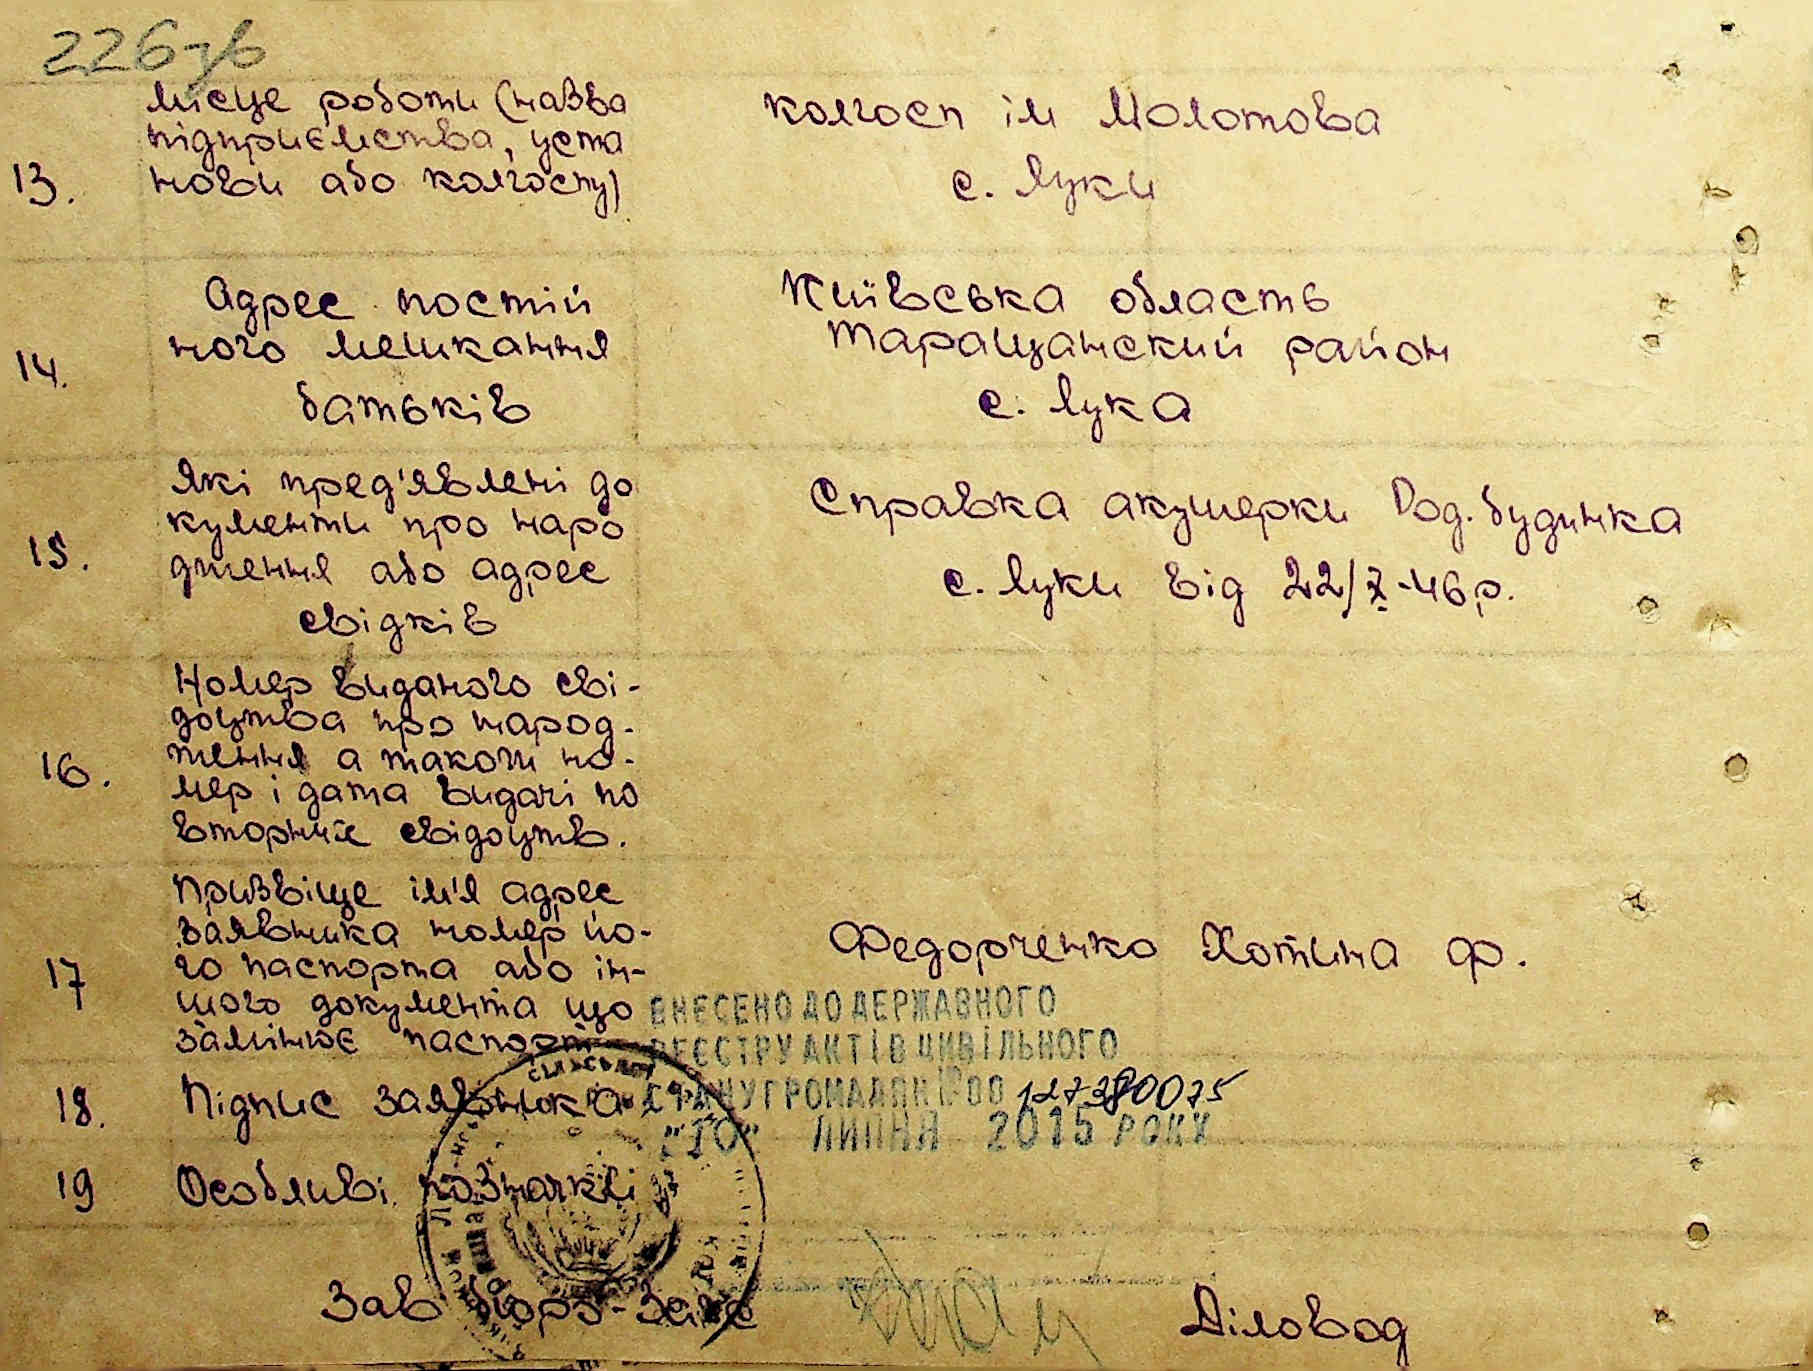 226 зв
13.
місце роботи (назва
підприємства, уста
нови або колгоспу)
колгосп ім Молотова
с. Луки
14.
Адрес постій
ного мешкання
батьків
Київська область
Таращанский район
с. Лука
15.
Які пред'явлені до
кументи про наро
дження або адрес
свідків
Справка акушерки Род. будинка
с. Луки від 22/7-46 р.
16.
Номер виданого сві-
доцтва про народ-
ження а також но-
мер і дата видачі по
вторних свідоцтв.
17
Призвіще ім'я адрес
заявника номер йо-
го паспорта або ін-
шого документа що
замінює паспорт
Федорченко Хотина Ф.
ВНЕСЕНО ДО ДЕРЖАВНОГО
РЕЄСТРУ АКТІВ ЦИВІЛЬНОГО
СТАНУ ГРОМАДЯН №00 127380075
"10" ЛИПНЯ 2015 РОКУ
18.
Підпис заявника
19
Особливі позначки
Зав бюро-Загс
Діловод